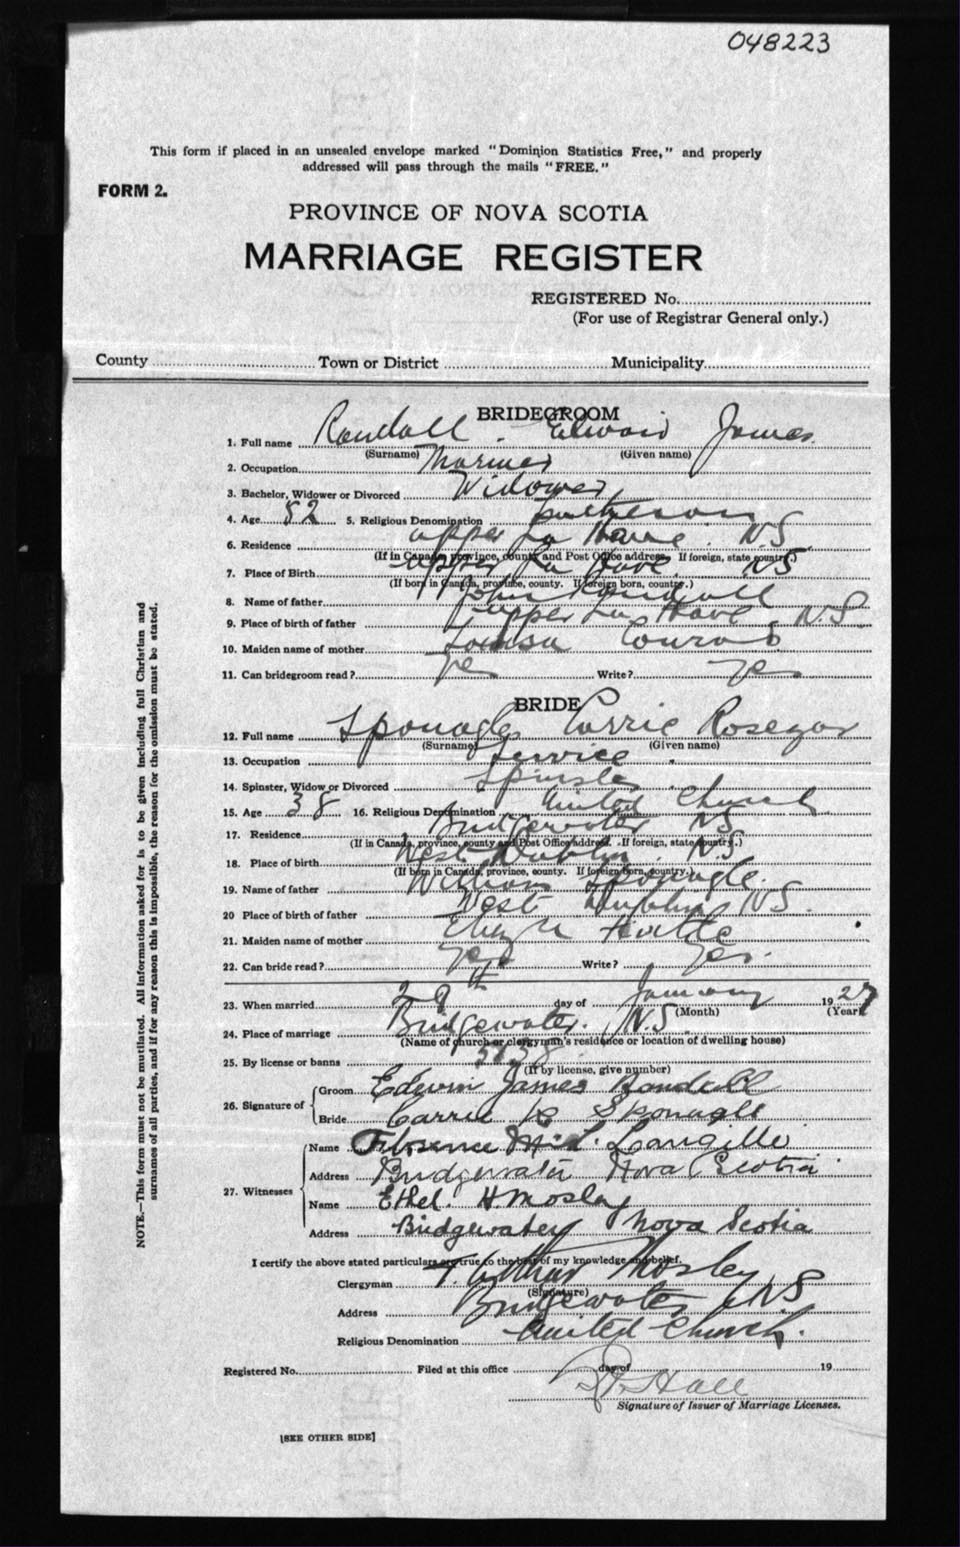 048223
This form if placed in an unsealed envelope marked "Dominion Statistics Free," and properly
addressed will pass through the mails "FREE."
FORM 2.
PROVINCE OF NOVA SCOTIA
MARRIAGE REGISTER
REGISTERED No.
(For use of Registrar General only.)
County Town or District Municipality
BRIDEGROOM
1. Full name Randall Edward James
(Surname) (Given name)
2. Occupation Mariner
3. Bachelor, Widower or Divorced Widower
4. Age 52 5. Religious Denomination Lutheran
6. Residence Upper La Have N.S.
(If in Canada, province, county and Post Office address. If foreign, state country.)
7. Place of Birth Upper La Have NS
(If born in Canada, province, county. If foreign born, country.)
8. Name of father John Randall
9. Place of birth of father Upper La Have N.S.
10. Maiden name of mother Louisa Conrad
11. Can bridegroom read? yes Write? yes
BRIDE
12. Full name Sponagle Carrie
(Surname) (Given name)
13. Occupation Service
14. Spinster, Widow or Divorced Spinster
15. Age 38 16. Religious Denomination United Church
17. Residence Bridgewater NS
(If in Canada, province, county and Post Office address. If foreign, state country.)
18. Place of birth West Dublin N.S
(If born in Canada, province, county. If foreign born, country.)
19. Name of father William Sponagle.
20 Place of birth of father West Dublin NS.
21. Maiden name of mother
22. Can bride read? yes Write? yes.
23. When married 29th day of January 1927
(Month) (Year)
24. Place of marriage Bridgewater. N.S
(Name of church or clergyman's residence or location of dwelling house)
25. By license or banns 5638
(If by license, give number)
26. Signature of Groom Edwin James Randall
Bride Carrie R Sponagle
27. Witnesses Name Florence Langille
Address Bridgewater Nova Scotia
Name Ethel. H. Mosley
Address Bridgewater Nova Scotia
I certify the above stated particulars are true to the best of my knowledge and belief.
Clergyman T. Arthur Mosley
(Signature)
Address Bridgewater NS
Religious Denomination United Church.
Registered No. Filed at this office day of 19
Hall
Signature of Issuer of Marriage Licenses.
[SEE OTHER SIDE]
NOTE.—This form must not be mutilated. All information asked for is to be given including full Christian and
surnames of all parties, and if for any reason this is impossible, the reason for the omission must be stated.